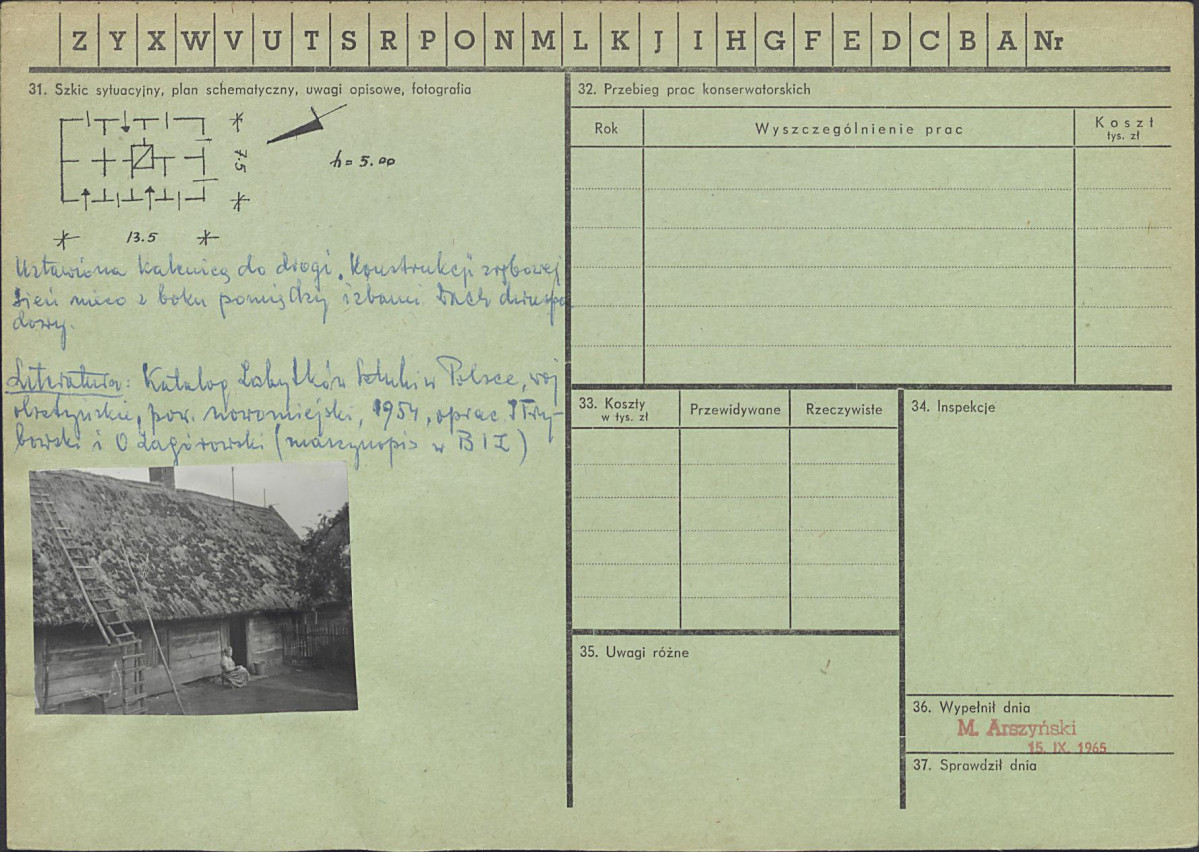 Z Y X W V U T S R P O N M L K J I H G F E D C B A Nr
31. Szkic sytuacyjny, plan schematyczny, uwagi opisowe, fotografia
7.5
h = 5.00
13.5
Ustawiona kalenicą do drogi. Konstrukcji zrębowej
Sień nieco z boku pomiędzy izbami Dach dwuspa
dowy.
Literatura: Katalog Zabytków Sztuki w Polsce, woj
olsztyńskie, pow. nowomiejski, 1954, oprac.
bowski i O Zagórowski (maszynopis w B I Z)
32. Przebieg prac konserwatorskich
Rok
Wyszczególnienie prac
Koszt
tys. zł
33. Koszty
w tys. zł
Przewidywane
Rzeczywiste
34. Inspekcje
35. Uwagi różne
36. Wypełnił dnia
M. Arszyński
15. IX. 1965
37. Sprawdził dnia